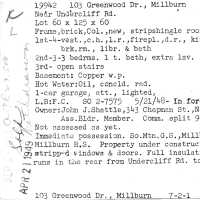 19942   103 Greenwood Dr., Millburn
Near Undercliff Rd.
Lot 60 x 125 x 60
Frame,brick,Col.,new, stripshingle roo
1st-4-vest.,c.h.,l.r.,firepl.,d.r., ki
brk.rm., libr. & bath
2nd-3-3 bdrms. 1 t. bath, extra lav.
3rd- open stairs
Basement: Copper w.p.
Hot Water:Oil, concld. rad.
1-car garage, att., lighted,
L.BifC. SO 2-7575 5/21/48- In for
Owner:John J.Shattle,343 Chapman St.,N
Ass.Bldr. Member. Comm. split 9
Not assessed as yet.
Immediate possession. So.Mtn.G.S,Mill
Millburn H.S. Property under construc
stripp-d windows & doors. Full insulat
runs in the rear from Undercliff Rd. to
103 Greenwood Dr., Millburn 7-2-1
APR 2 1949